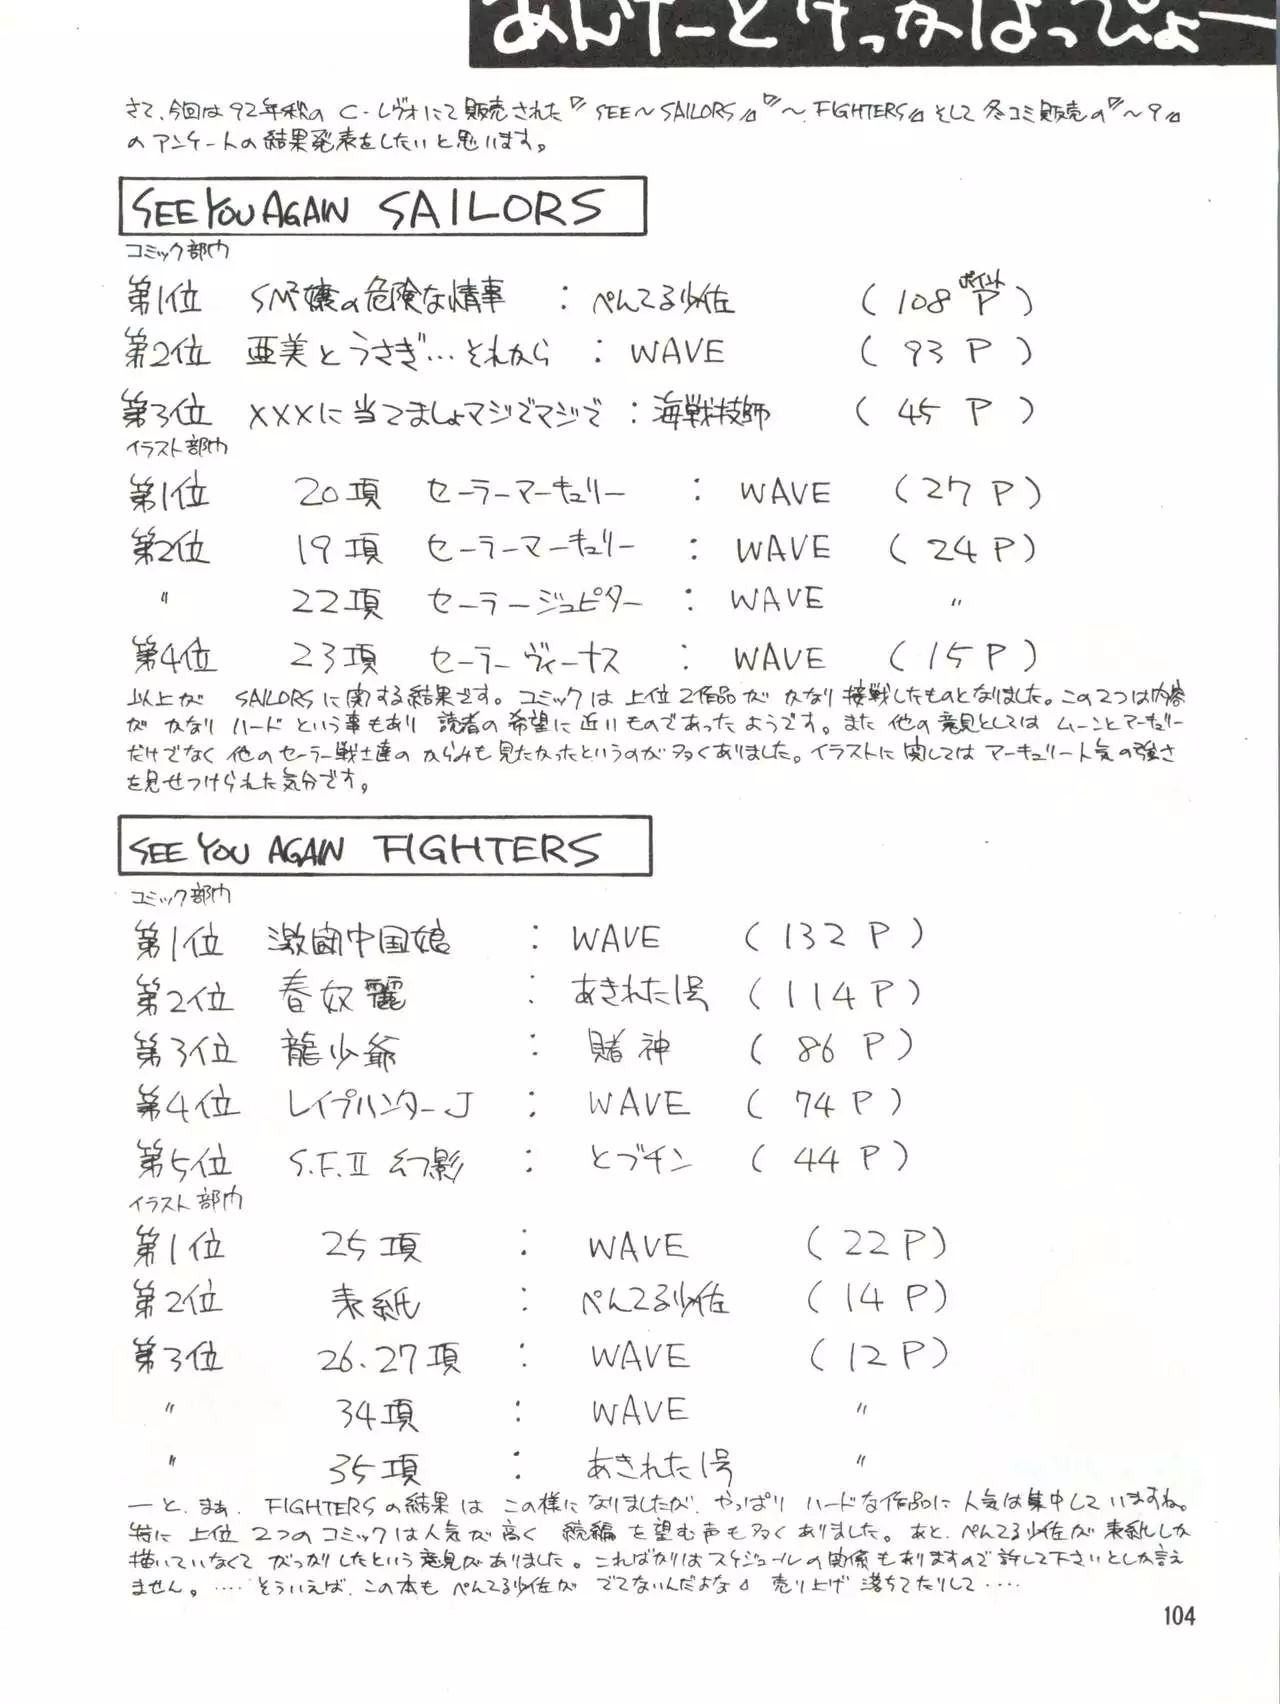 あんけーとけっかはっぴょー
さて、今回は92年秋のC・レヴォにて販売された『SEE～SAILORS』『～FIGHTERS』そして冬コミ販売の『～9』
のアンケートの結果発表をしたいと思います。
SEE YOU AGAIN SAILORS
コミック部門
第1位 SM²嬢の危険な情事 : ぺんてる少佐 (108ポイントP)
第2位 亜美とうさぎ…それから : WAVE (93P)
第3位 XXXに当てましょマジでマジで : 海戦技師 (45P)
イラスト部門
第1位 20項 セーラーマーキュリー : WAVE (27P)
第2位 19項 セーラーマーキュリー : WAVE (24P)
〃 22項 セーラージュピター : WAVE 〃
第4位 23項 セーラーヴィーナス : WAVE (15P)
以上がSAILORSに関する結果です。コミックは上位2作品がかなり接戦したものとなりました。この2つは内容
がかなりハードという事もあり読者の希望に近いものであったようです。また他の意見としてはムーンとマーキュリー
だけでなく他のセーラー戦士達のからみも見たかったというのが多くありました。イラストに関してはマーキュリー人気の強さ
を見せつけられた気分です。
SEE YOU AGAIN FIGHTERS
コミック部門
第1位 激闘中国娘 : WAVE (132P)
第2位 春奴麗 : あきれた1号 (114P)
第3位 龍少爺 : 賭神 (86P)
第4位 レイプハンターJ : WAVE (74P)
第5位 S.F.II 幻影 : とブチン (44P)
イラスト部門
第1位 25項 : WAVE (22P)
第2位 表紙 : ぺんてる少佐 (14P)
第3位 26.27項 : WAVE (12P)
〃 34項 : WAVE 〃
〃 35項 : あきれた1号 〃
―と、まぁ、FIGHTERSの結果はこの様になりましたが、やっぱりハードな作品に人気は集中していますね。
特に上位2つのコミックは人気が高く続編を望む声も多くありました。あと、ぺんてる少佐が表紙しか
描いていなくてがっかりしたという意見がありました。こればかりはスケジュールの関係もありますので許して下さいとしか言え
ません。……そういえば、この本もぺんてる少佐がでてないんだよな。売り上げ落ちてたりして……
104